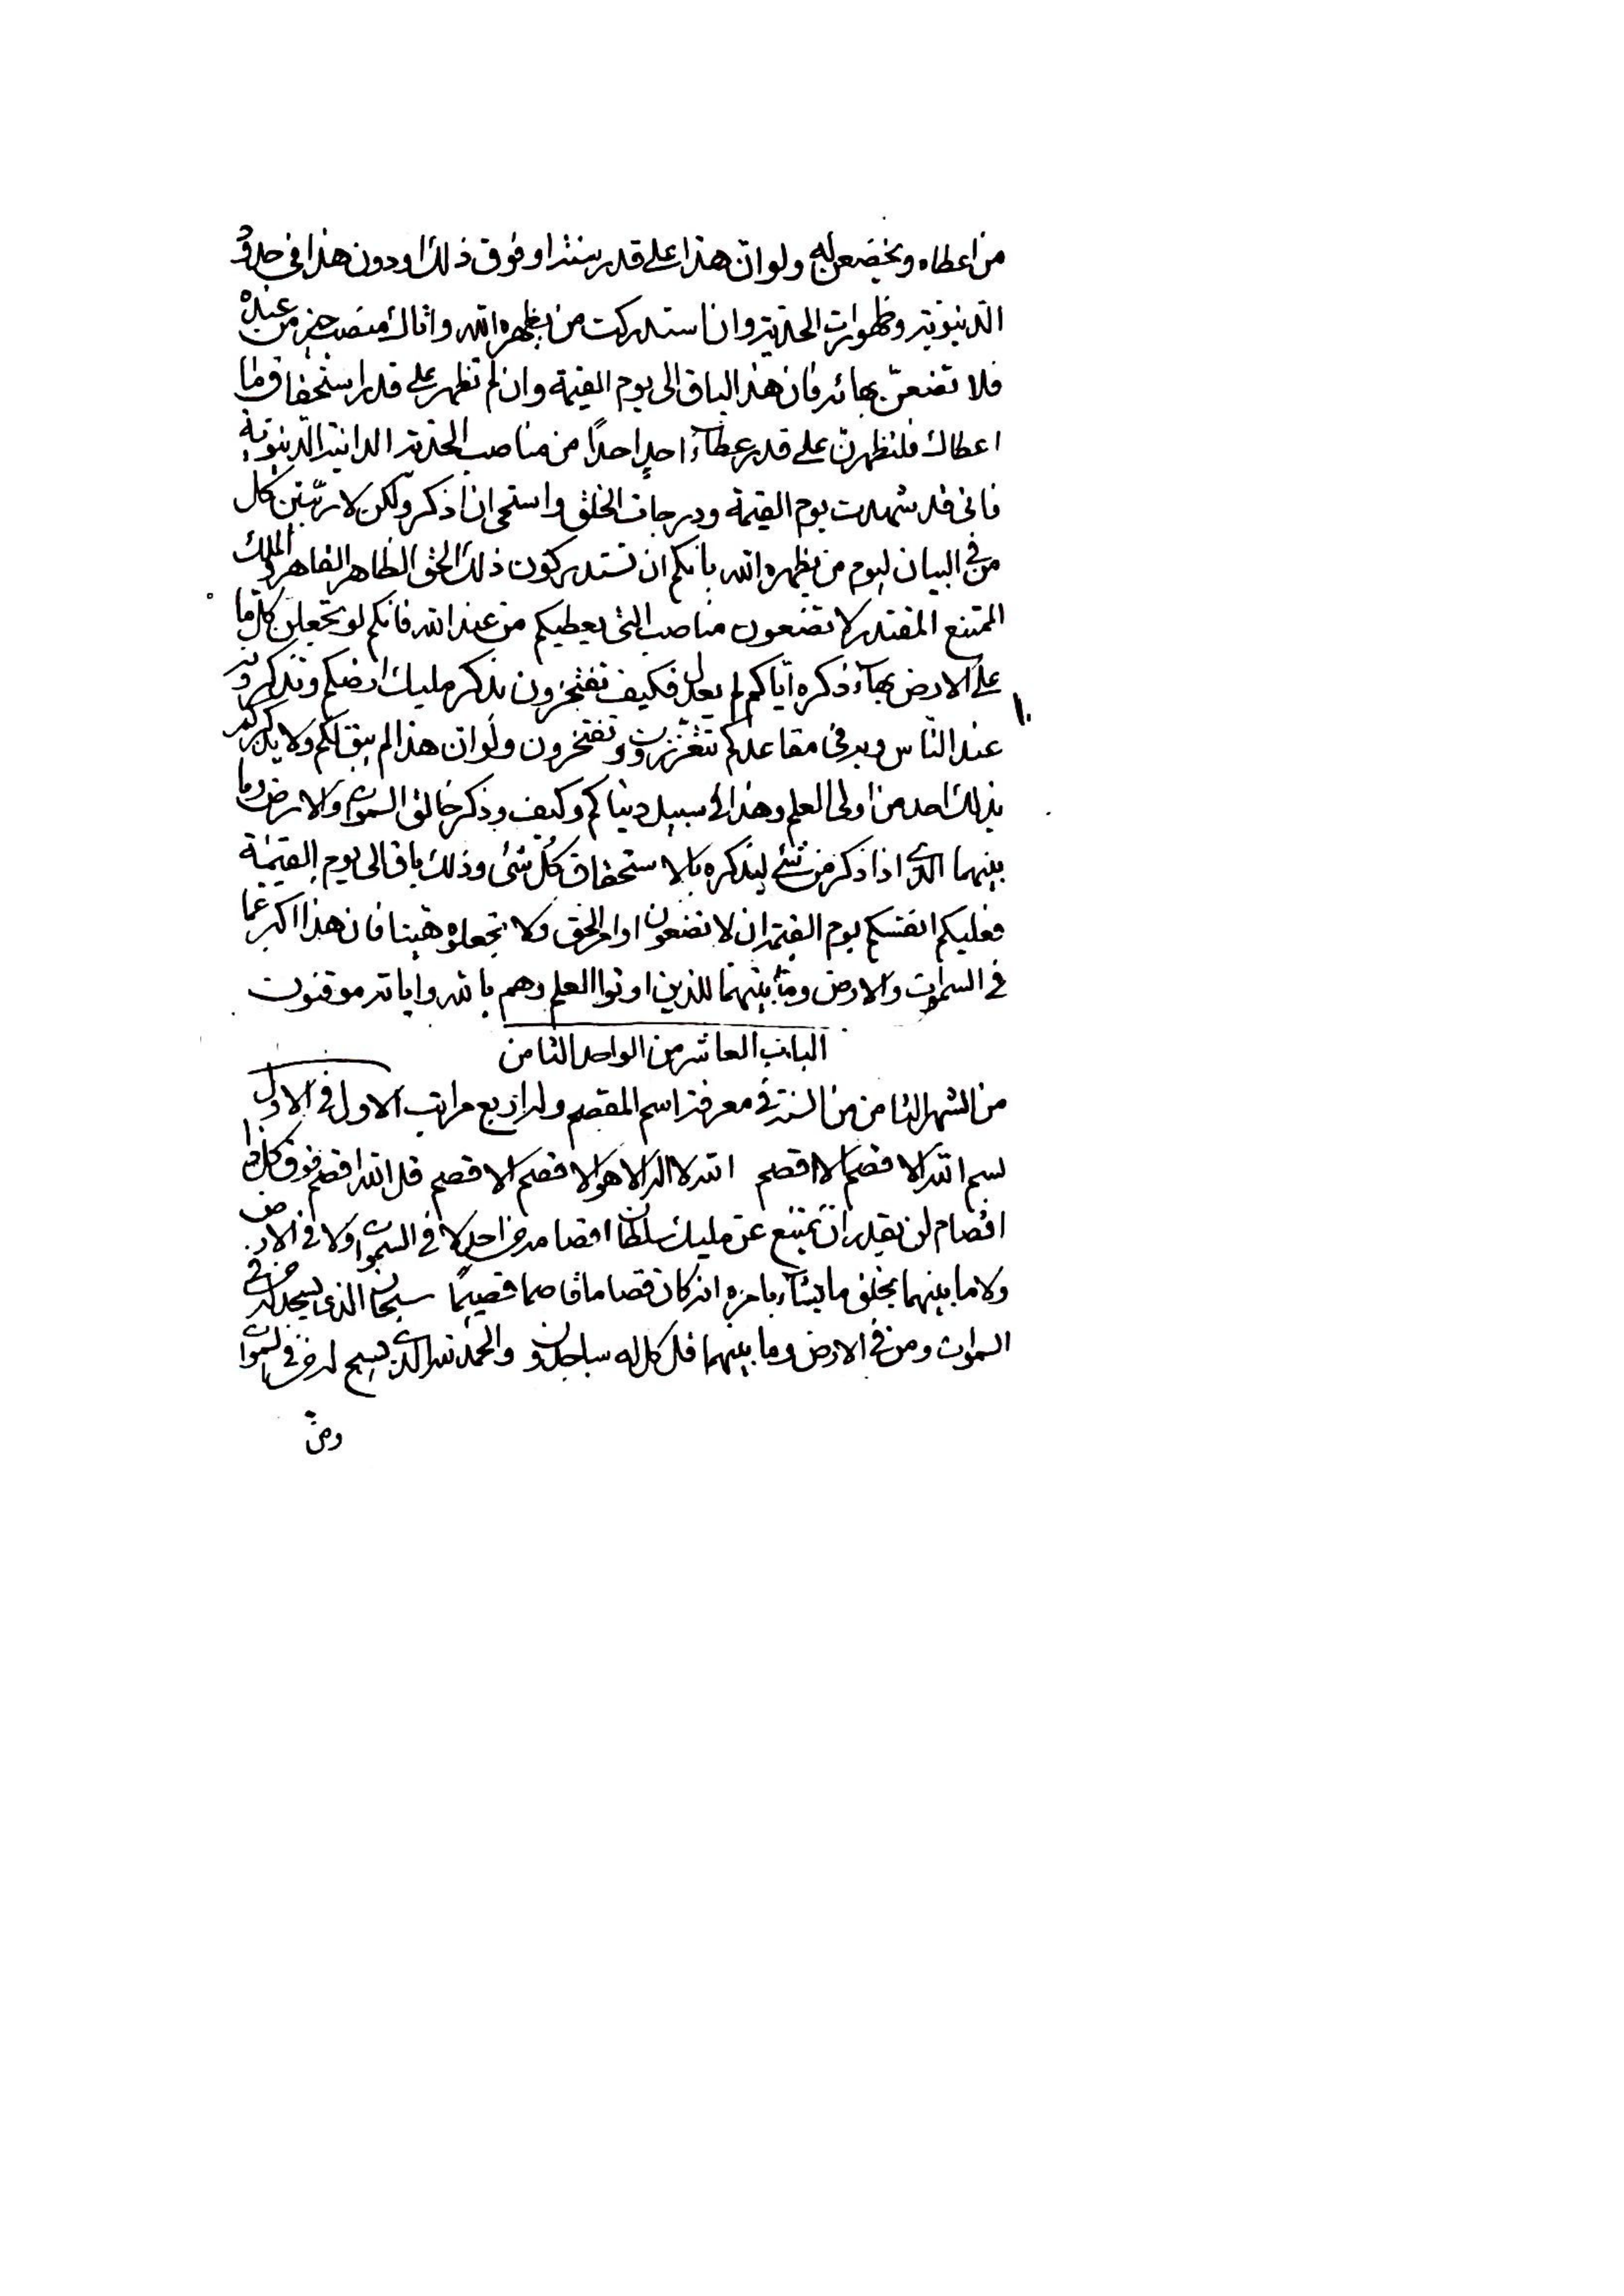 من اعطاه ويخضعن له ولو ان هذا على قدر سنة او فوق ذلك او دون هذا فى حدود
الدنيوية وظهورات الحدية وان استدركت من يظهره الله واتاك منصب خير من عنده
فلا تضعن بهائه فان هذا الباق الى يوم القيمة وان لم تظهر على قدر استحقاق ما
اعطاك فلتظهرن على قدر عطاء احد احدا من مناصب الحدية الدانية الدنيوية
فانى قد شهدت يوم القيمة ودرجات الخلق واستحى ان اذكر ولكن لاربين كل
من فى البيان ليوم من يظهره الله بانكم ان تستدركون ذلك الحق الظاهر القاهر والملك
الممتنع المقتدر لا تضعون مناصب التى يعطيكم من عند الله فانكم لو تجعلن كل ما
على الارض بهاء ذكره اياكم لم يعدل فكيف تفتخرون بذكر مليك ارضكم وتذكرونه
عند الناس وبه فى مقاعدكم تتعززون وتفتخرون ولو ان هذا لم يبق لكم ولا يذكركم
بذلك احد من اولى العلم وهذا فى سبيل دنياكم وكيف وذكر خالق السموات والارض وما
بينهما الذى اذا ذكر من شئ ليذكره بالاستحقاق كل شئ وذلك باق الى يوم القيمة
فعليكم انفسكم يوم القيمة ان لا تضعون اوامر الحق ولا تجعلوه هينا فان هذا اكبر عما
فى السموات والارض وما بينهما للذين اوتوا العلم وهم بالله واياته موقنون
الباب العاشر من الواحد الثامن
من الشهر الثامن من السنة فى معرفة اسم المقصم وله اربع مراتب الاول فى الاول
بسم الله الاقصم الاقصم الله لا اله الا هو الاقصم الاقصم قل الله اقصم فوق كل ذا
اقصام لن يقدر ان يمتنع عن مليك سلطان اقصامه من احد لا فى السموات ولا فى الارض
ولا ما بينهما يخلق ما يشاء بامره انه كان قصاما قاصما قصيما سبحان الذى يسجد له من فى
السموات ومن فى الارض وما بينهما قل كل له ساجدون والحمد لله الذى يسبح له من فى السموات
ومن